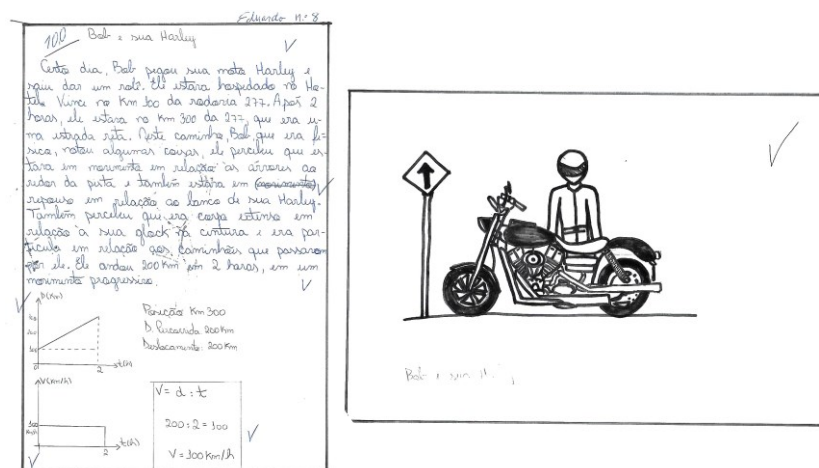 Eduardo n.º 8
10,0
Bob e sua Harley
Certo dia, Bob pegou sua moto Harley e
saiu dar um rolê. Ele estava hospedado no Ho-
tel Vinci no Km 100 da rodovia 277. Após 2
horas, ele estava no Km 300 da 277, que era u-
ma estrada reta. Neste caminho, Bob, que era fí-
sico, notou algumas coisas, ele percebeu que es-
tava em movimento em relação às árvores ao
redor da pista e também estava em (movimento)
repouso em relação ao banco de sua Harley.
Também percebeu que era corpo extenso em
relação à sua glock na cintura e era par-
tícula em relação aos caminhões que passaram
por ele. Ele andou 200 Km em 2 horas, em um
movimento progressivo.
D(Km)
300
200
100
0
2
t(h)
Posição Km 300
D. Percorrida 200Km
Deslocamento: 200Km
V(Km/h)
100
Km/h
2
t(h)
V = d : t
200 : 2 = 100
V = 100 Km/h
Bob e sua